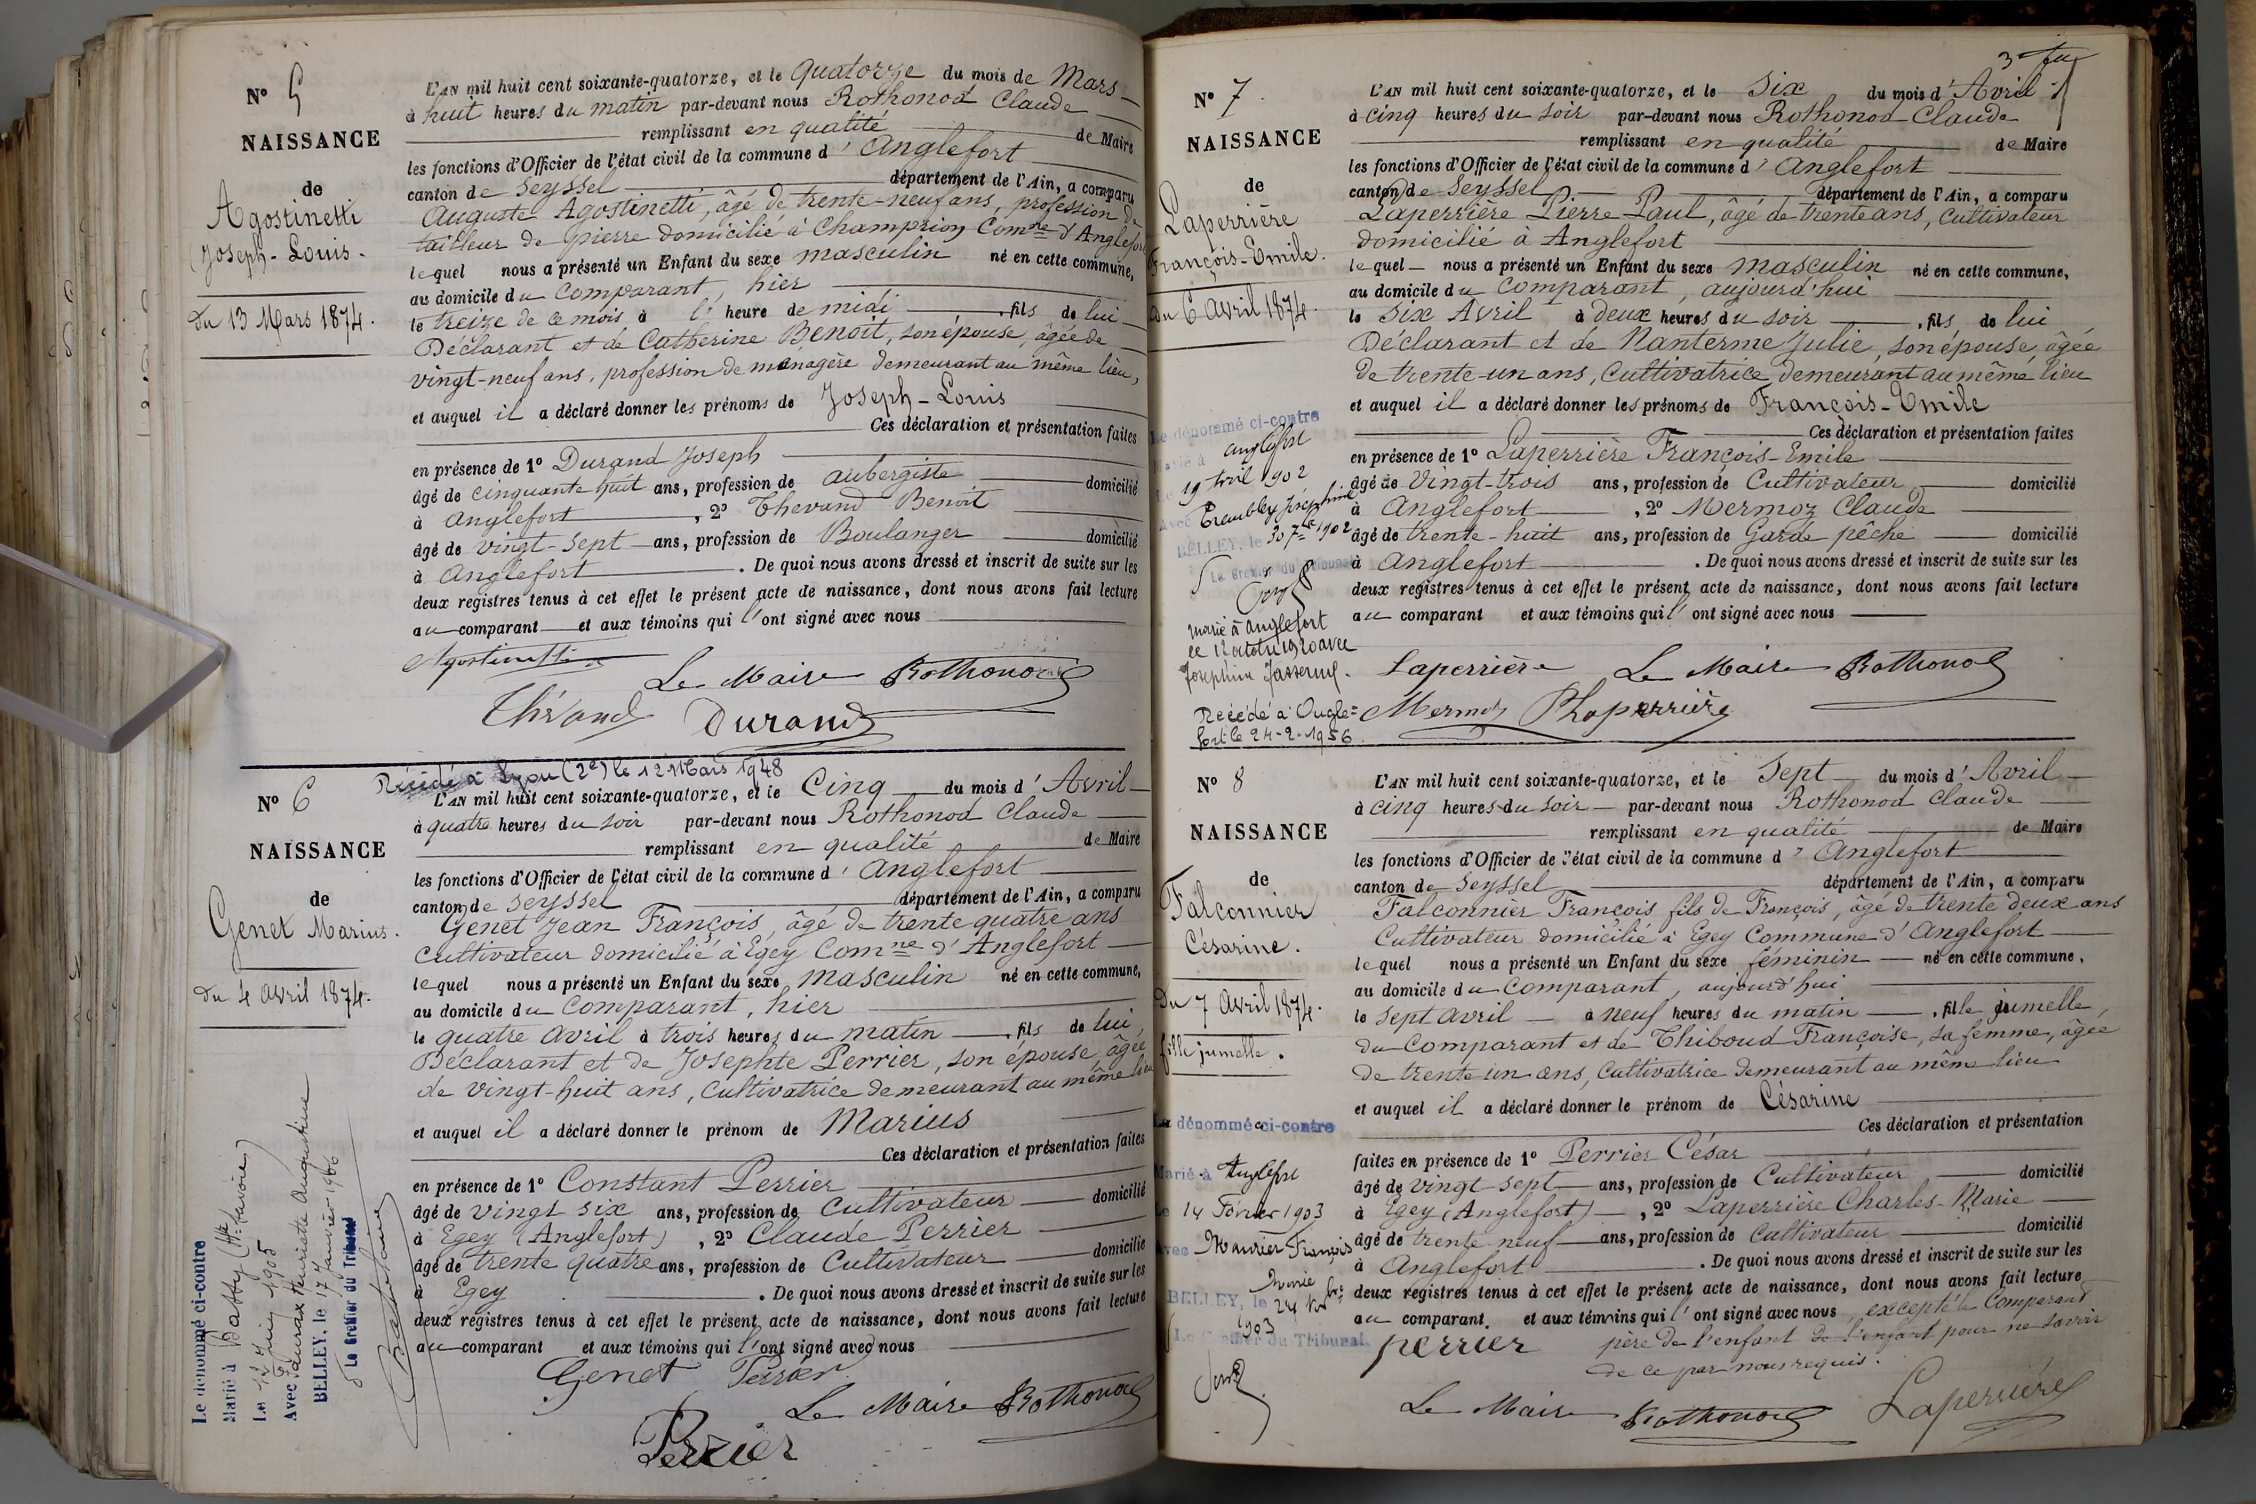 N° 5
NAISSANCE
de
Agostinetti
Joseph-Louis.
Du 13 Mars 1874.
L'AN mil huit cent soixante-quatorze, et le quatorze du mois de Mars
à huit heures du matin par-devant nous Rothonod Claude
remplissant en qualité de Maire
les fonctions d'Officier de l'état civil de la commune d'Anglefort
canton de Seyssel département de l'Ain, a comparu
Auguste Agostinetti, âgé de trente-neuf ans, profession de
tailleur de pierre domicilié à Champrion Comne d'Anglefort
lequel nous a présenté un Enfant du sexe masculin né en cette commune,
au domicile du Comparant, hier
le treize de ce mois à l'heure de midi, fils de lui
Déclarant et de Catherine Benoit, son épouse, âgée de
vingt-neuf ans, profession de ménagère demeurant au même lieu,
et auquel il a déclaré donner les prénoms de Joseph-Louis
Ces déclaration et présentation faites
en présence de 1° Durand Joseph
âgé de cinquante huit ans, profession de aubergiste domicilié
à Anglefort, 2° Thevand Benoit
âgé de vingt-sept ans, profession de Boulanger domicilié
à Anglefort. De quoi nous avons dressé et inscrit de suite sur les
deux registres tenus à cet effet le présent acte de naissance, dont nous avons fait lecture
au comparant et aux témoins qui l'ont signé avec nous
Agostinetti Le Maire Rothonod
Thévand Durand
Décédé à Lyon (2e) le 12 Mars 1948
N° 6
NAISSANCE
de
Genet Marius.
Du 4 Avril 1874.
L'AN mil huit cent soixante-quatorze, et le Cinq du mois d'Avril
à quatre heures du soir par-devant nous Rothonod Claude
remplissant en qualité de Maire
les fonctions d'Officier de l'état civil de la commune d'Anglefort
canton de Seyssel département de l'Ain, a comparu
Genet Jean François, âgé de trente quatre ans
cultivateur domicilié à Egey Comne d'Anglefort
lequel nous a présenté un Enfant du sexe masculin né en cette commune,
au domicile du Comparant, hier
le quatre avril à trois heures du matin, fils de lui,
Déclarant et de Josephte Perrier, son épouse, âgée
de vingt-huit ans, Cultivatrice demeurant au même lieu
et auquel il a déclaré donner le prénom de Marius
Ces déclaration et présentation faites
en présence de 1° Constant Perrier
âgé de vingt six ans, profession de Cultivateur domicilié
à Egey (Anglefort), 2° Claude Perrier
âgé de trente quatre ans, profession de Cultivateur domicilié
à Egey. De quoi nous avons dressé et inscrit de suite sur les
deux registres tenus à cet effet le présent acte de naissance, dont nous avons fait lecture
au comparant et aux témoins qui l'ont signé avec nous
Genet Perrier
Le Maire Rothonod
Perrier
Le dénommé ci-contre
Marié à (Hte Savoie)
Le 17 Juin 1905
Avec Henriette Augustine
BELLEY, le 17 Janvier 1906
Le Greffier du Tribunal
N° 7
NAISSANCE
de
Laperrière
François-Emile.
Du 6 Avril 1874.
Le dénommé ci-contre
Marié à Anglefort
19 Avril 1902
Avec Trembley Joséphine
BELLEY, le 30 7bre 1902
Le Greffier du Tribunal
Marié à Anglefort
le 12 octobre 1920 avec
Joséphine
Décédé à Angle=
fort le 24-2-1956
L'AN mil huit cent soixante-quatorze, et le Six du mois d'Avril
à cinq heures du soir par-devant nous Rothonod Claude
remplissant en qualité de Maire
les fonctions d'Officier de l'état civil de la commune d'Anglefort
canton de Seyssel département de l'Ain, a comparu
Laperrière Pierre Paul, âgé de trente ans, cultivateur
domicilié à Anglefort
lequel nous a présenté un Enfant du sexe masculin né en cette commune,
au domicile du Comparant, aujourd'hui
le Six Avril à deux heures du soir, fils de lui
Déclarant et de Nanterme Julie, son épouse, âgée
de trente-un ans, Cultivatrice demeurant au même lieu
et auquel il a déclaré donner les prénoms de François-Emile
Ces déclaration et présentation faites
en présence de 1° Laperrière François-Emile
âgé de Vingt-trois ans, profession de Cultivateur domicilié
à Anglefort, 2° Mermoz Claude
âgé de trente-huit ans, profession de Garde pêche domicilié
à Anglefort. De quoi nous avons dressé et inscrit de suite sur les
deux registres tenus à cet effet le présent acte de naissance, dont nous avons fait lecture
au comparant et aux témoins qui l'ont signé avec nous
Laperrière Le Maire Rothonod
Mermoz Laperrière
N° 8
NAISSANCE
de
Falconnier
Césarine.
Du 7 Avril 1874.
fille jumelle.
La dénommée ci-contre
Marié à Anglefort
Le 14 Février 1903
Avec Maurier François
Marie
BELLEY, le 24 Nbre
1903
Le Greffier du Tribunal
L'AN mil huit cent soixante-quatorze, et le Sept du mois d'Avril
à cinq heures du soir par-devant nous Rothonod Claude
remplissant en qualité de Maire
les fonctions d'Officier de l'état civil de la commune d'Anglefort
canton de Seyssel département de l'Ain, a comparu
Falconnier François fils de François, âgé de trente deux ans
Cultivateur domicilié à Egey Commune d'Anglefort
lequel nous a présenté un Enfant du sexe féminin né en cette commune,
au domicile du Comparant, aujourd'hui
le sept avril à neuf heures du matin, fille jumelle,
du Comparant et de Thiboud Françoise, sa femme, âgée
de trente un ans, Cultivatrice demeurant au même lieu
et auquel il a déclaré donner le prénom de Césarine
Ces déclaration et présentation
faites en présence de 1° Perrier César
âgé de vingt sept ans, profession de Cultivateur domicilié
à Egey (Anglefort), 2° Laperrière Charles-Marie
âgé de trente neuf ans, profession de Cultivateur domicilié
à Anglefort. De quoi nous avons dressé et inscrit de suite sur les
deux registres tenus à cet effet le présent acte de naissance, dont nous avons fait lecture
au comparant et aux témoins qui l'ont signé avec nous excepté le Comparant
perrier père de l'enfant de l'enfant pour ne savoir
de ce par nous requis.
Le Maire Rothonod Laperrière